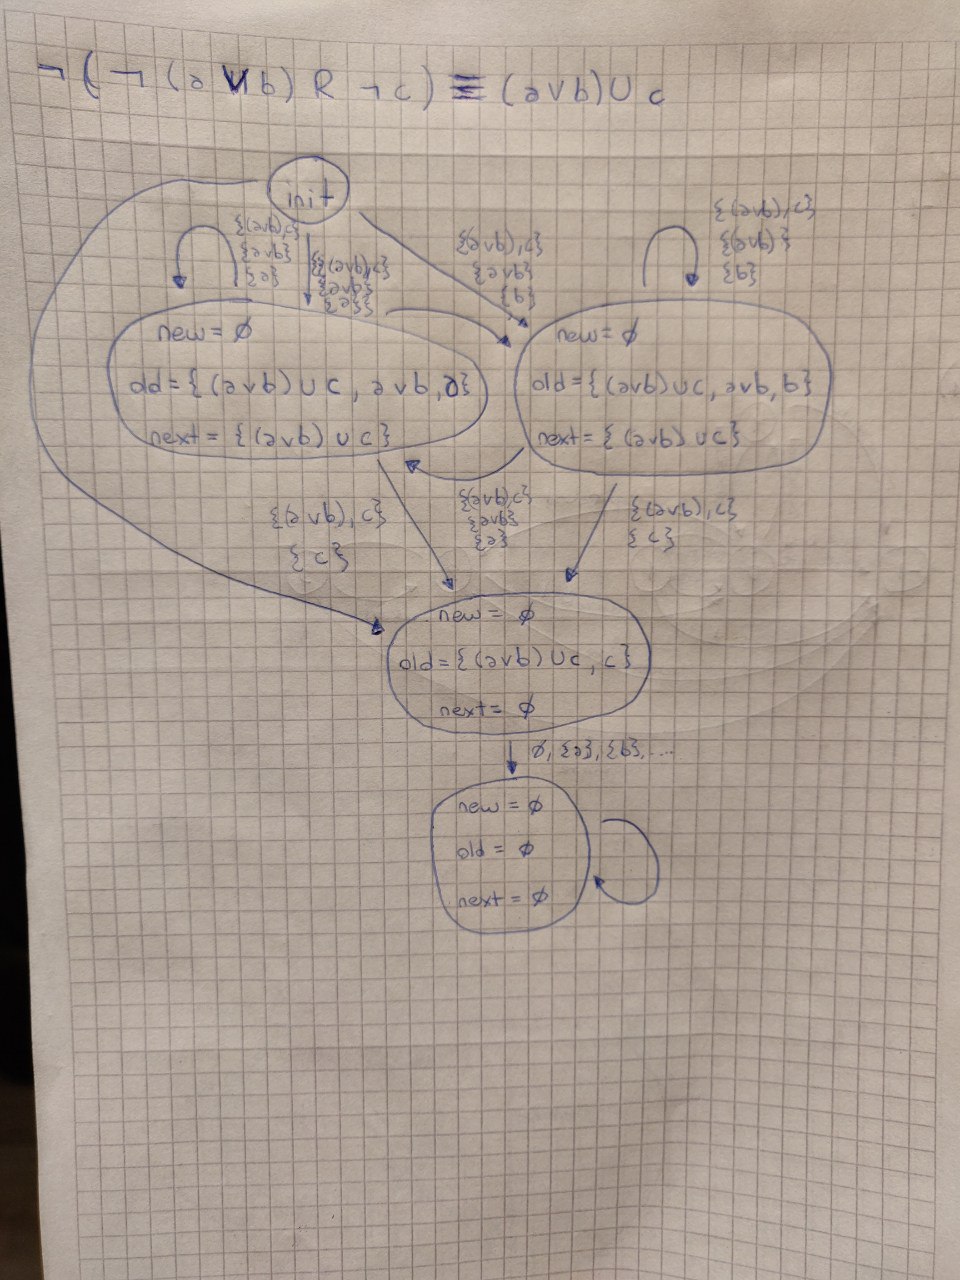 ¬(¬(a∨b) R ¬c) ≡ (a∨b)∪c
init
{(a∨b),c}
{a∨b}
{a}
{(a∨b),c}
{a∨b}
{a}
{(a∨b),c}
{a∨b}
{b}
{(a∨b),c}
{(a∨b)}
{b}
new = ∅
old = {(a∨b)∪c, a∨b, a}
next = {(a∨b)∪c}
new = ∅
old = {(a∨b)∪c, a∨b, b}
next = {(a∨b)∪c}
{(a∨b),c}
{c}
{(a∨b),c}
{a∨b}
{a}
{(a∨b),c}
{c}
new = ∅
old = {(a∨b)∪c, c}
next = ∅
∅, {a}, {b}, ...
new = ∅
old = ∅
next = ∅